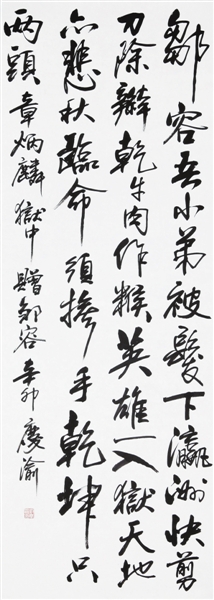 鄒容吾小弟被髮下瀛洲快剪
刀除辮乾牛肉作糇英雄一入獄天地
亦悲秋臨命須摻手乾坤只
兩頭章炳麟獄中贈鄒容辛卯慶渝